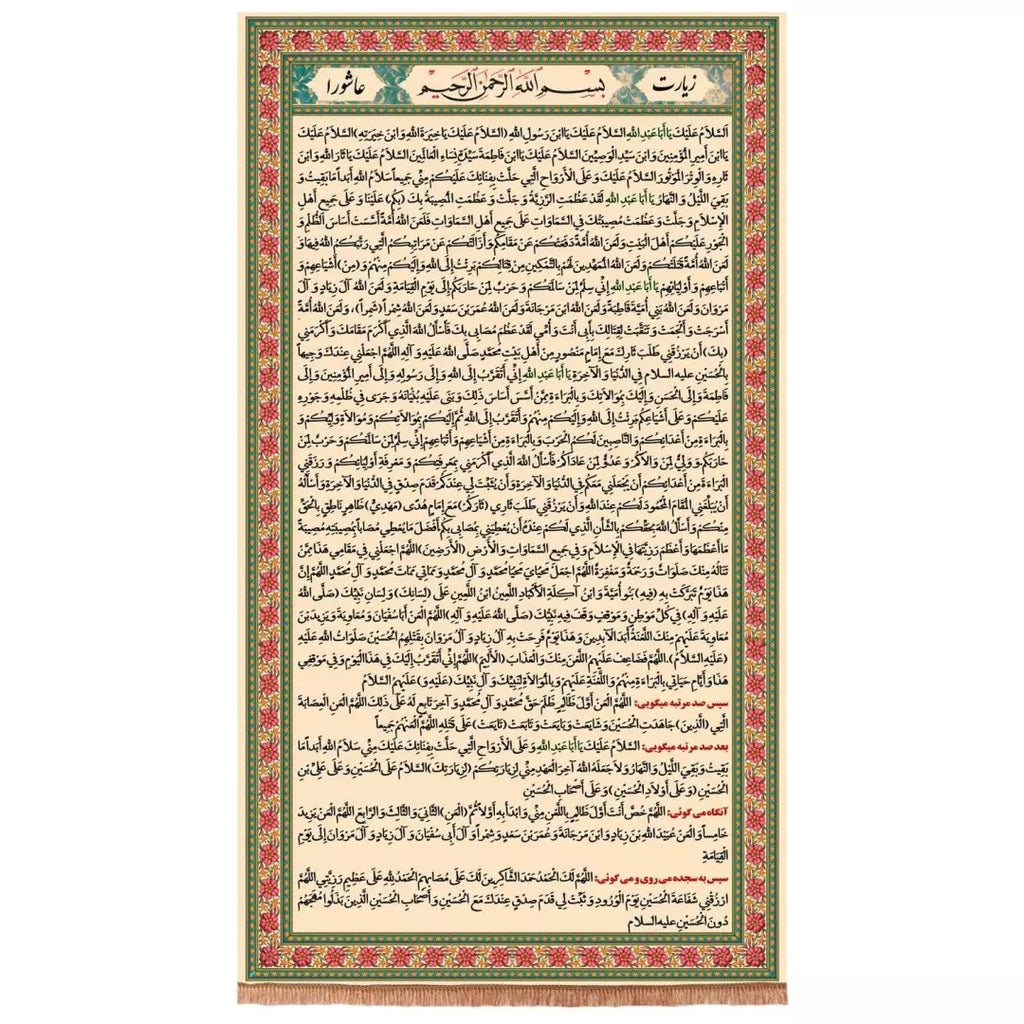 زیارت
بِسْمِ اللهِ الرَّحْمنِ الرَّحیمِ
عاشورا
اَلسَّلَامُ عَلَيْكَ يَا أَبَا عَبْدِ اللهِ السَّلَامُ عَلَيْكَ يَا ابْنَ رَسُولِ اللهِ (السَّلَامُ عَلَيْكَ يَا خِيَرَةَ اللهِ وَ ابْنَ خِيَرَتِهِ) السَّلَامُ عَلَيْكَ
يَا ابْنَ أَمِيرِ الْمُؤْمِنِينَ وَ ابْنَ سَيِّدِ الْوَصِيِّينَ السَّلَامُ عَلَيْكَ يَا ابْنَ فَاطِمَةَ سَيِّدَةِ نِسَاءِ الْعَالَمِينَ السَّلَامُ عَلَيْكَ يَا ثَارَ اللهِ وَ ابْنَ
ثَارِهِ وَ الْوِتْرَ الْمَوْتُورَ السَّلَامُ عَلَيْكَ وَ عَلَى الْأَرْوَاحِ الَّتِي حَلَّتْ بِفِنَائِكَ عَلَيْكُمْ مِنِّي جَمِيعاً سَلَامُ اللهِ أَبَداً مَا بَقِيتُ وَ
بَقِيَ اللَّيْلُ وَ النَّهَارُ يَا أَبَا عَبْدِ اللهِ لَقَدْ عَظُمَتِ الرَّزِيَّةُ وَ جَلَّتْ وَ عَظُمَتِ الْمُصِيبَةُ بِكَ (بِكُمْ) عَلَيْنَا وَ عَلَى جَمِيعِ أَهْلِ
الْإِسْلَامِ وَ جَلَّتْ وَ عَظُمَتْ مُصِيبَتُكَ فِي السَّمَاوَاتِ عَلَى جَمِيعِ أَهْلِ السَّمَاوَاتِ فَلَعَنَ اللهُ أُمَّةً أَسَّسَتْ أَسَاسَ الظُّلْمِ وَ
الْجَوْرِ عَلَيْكُمْ أَهْلَ الْبَيْتِ وَ لَعَنَ اللهُ أُمَّةً دَفَعَتْكُمْ عَنْ مَقَامِكُمْ وَ أَزَالَتْكُمْ عَنْ مَرَاتِبِكُمُ الَّتِي رَتَّبَكُمُ اللهُ فِيهَا وَ
لَعَنَ اللهُ أُمَّةً قَتَلَتْكُمْ وَ لَعَنَ اللهُ الْمُمَهِّدِينَ لَهُمْ بِالتَّمْكِينِ مِنْ قِتَالِكُمْ بَرِئْتُ إِلَى اللهِ وَ إِلَيْكُمْ مِنْهُمْ وَ (مِنْ) أَشْيَاعِهِمْ وَ
أَتْبَاعِهِمْ وَ أَوْلِيَائِهِمْ يَا أَبَا عَبْدِ اللهِ إِنِّي سِلْمٌ لِمَنْ سَالَمَكُمْ وَ حَرْبٌ لِمَنْ حَارَبَكُمْ إِلَى يَوْمِ الْقِيَامَةِ وَ لَعَنَ اللهُ آلَ زِيَادٍ وَ آلَ
مَرْوَانَ وَ لَعَنَ اللهُ بَنِي أُمَيَّةَ قَاطِبَةً وَ لَعَنَ اللهُ ابْنَ مَرْجَانَةَ وَ لَعَنَ اللهُ عُمَرَ بْنَ سَعْدٍ وَ لَعَنَ اللهُ شِمْراً (شَمِراً)، وَ لَعَنَ اللهُ أُمَّةً
أَسْرَجَتْ وَ أَلْجَمَتْ وَ تَنَقَّبَتْ لِقِتَالِكَ بِأَبِي أَنْتَ وَ أُمِّي لَقَدْ عَظُمَ مُصَابِي بِكَ فَأَسْأَلُ اللهَ الَّذِي أَكْرَمَ مَقَامَكَ وَ أَكْرَمَنِي
(بِكَ) أَنْ يَرْزُقَنِي طَلَبَ ثَارِكَ مَعَ إِمَامٍ مَنْصُورٍ مِنْ أَهْلِ بَيْتِ مُحَمَّدٍ صَلَّى اللهُ عَلَيْهِ وَ آلِهِ اللَّهُمَّ اجْعَلْنِي عِنْدَكَ وَجِيهاً
بِالْحُسَيْنِ علیه السلام فِي الدُّنْيَا وَ الْآخِرَةِ يَا أَبَا عَبْدِ اللهِ إِنِّي أَتَقَرَّبُ إِلَى اللهِ وَ إِلَى رَسُولِهِ وَ إِلَى أَمِيرِ الْمُؤْمِنِينَ وَ إِلَى
فَاطِمَةَ وَ إِلَى الْحَسَنِ وَ إِلَيْكَ بِمُوَالَاتِكَ وَ بِالْبَرَاءَةِ مِمَّنْ أَسَّسَ أَسَاسَ ذَلِكَ وَ بَنَى عَلَيْهِ بُنْيَانَهُ وَ جَرَى فِي ظُلْمِهِ وَ جَوْرِهِ
عَلَيْكُمْ وَ عَلَى أَشْيَاعِكُمْ بَرِئْتُ إِلَى اللهِ وَ إِلَيْكُمْ مِنْهُمْ وَ أَتَقَرَّبُ إِلَى اللهِ ثُمَّ إِلَيْكُمْ بِمُوَالَاتِكُمْ وَ مُوَالَاةِ وَلِيِّكُمْ وَ
بِالْبَرَاءَةِ مِنْ أَعْدَائِكُمْ وَ النَّاصِبِينَ لَكُمُ الْحَرْبَ وَ بِالْبَرَاءَةِ مِنْ أَشْيَاعِهِمْ وَ أَتْبَاعِهِمْ إِنِّي سِلْمٌ لِمَنْ سَالَمَكُمْ وَ حَرْبٌ لِمَنْ
حَارَبَكُمْ وَ وَلِيٌّ لِمَنْ وَالَاكُمْ وَ عَدُوٌّ لِمَنْ عَادَاكُمْ فَأَسْأَلُ اللهَ الَّذِي أَكْرَمَنِي بِمَعْرِفَتِكُمْ وَ مَعْرِفَةِ أَوْلِيَائِكُمْ وَ رَزَقَنِي
الْبَرَاءَةَ مِنْ أَعْدَائِكُمْ أَنْ يَجْعَلَنِي مَعَكُمْ فِي الدُّنْيَا وَ الْآخِرَةِ وَ أَنْ يُثَبِّتَ لِي عِنْدَكُمْ قَدَمَ صِدْقٍ فِي الدُّنْيَا وَ الْآخِرَةِ وَ أَسْأَلُهُ
أَنْ يُبَلِّغَنِي الْمَقَامَ الْمَحْمُودَ لَكُمْ عِنْدَ اللهِ وَ أَنْ يَرْزُقَنِي طَلَبَ ثَارِي (ثَارِكُمْ) مَعَ إِمَامِ هُدًى (مَهْدِيٍّ) ظَاهِرٍ نَاطِقٍ بِالْحَقِّ
مِنْكُمْ وَ أَسْأَلُ اللهَ بِحَقِّكُمْ بِالشَّأْنِ الَّذِي لَكُمْ عِنْدَهُ أَنْ يُعْطِيَنِي بِمُصَابِي بِكُمْ أَفْضَلَ مَا يُعْطِي مُصَاباً بِمُصِيبَتِهِ مُصِيبَةً
مَا أَعْظَمَهَا وَ أَعْظَمَ رَزِيَّتَهَا فِي الْإِسْلَامِ وَ فِي جَمِيعِ السَّمَاوَاتِ وَ الْأَرْضِ (الْأَرَضِينَ) اللَّهُمَّ اجْعَلْنِي فِي مَقَامِي هَذَا مِمَّنْ
تَنَالُهُ مِنْكَ صَلَوَاتٌ وَ رَحْمَةٌ وَ مَغْفِرَةٌ اللَّهُمَّ اجْعَلْ مَحْيَايَ مَحْيَا مُحَمَّدٍ وَ آلِ مُحَمَّدٍ وَ مَمَاتِي مَمَاتَ مُحَمَّدٍ وَ آلِ مُحَمَّدٍ اللَّهُمَّ إِنَّ
هَذَا يَوْمٌ تَبَرَّكَتْ بِهِ (فِيهِ) بَنُو أُمَيَّةَ وَ ابْنُ آكِلَةِ الْأَكْبَادِ اللَّعِينُ ابْنُ اللَّعِينِ عَلَى (لِسَانِكَ) وَ لِسَانِ نَبِيِّكَ (صَلَّى اللهُ
عَلَيْهِ وَ آلِهِ) فِي كُلِّ مَوْطِنٍ وَ مَوْقِفٍ وَقَفَ فِيهِ نَبِيُّكَ (صَلَّى اللهُ عَلَيْهِ وَ آلِهِ) اللَّهُمَّ الْعَنْ أَبَا سُفْيَانَ وَ مُعَاوِيَةَ وَ يَزِيدَ بْنَ
مُعَاوِيَةَ عَلَيْهِمْ مِنْكَ اللَّعْنَةُ أَبَدَ الْآبِدِينَ وَ هَذَا يَوْمٌ فَرِحَتْ بِهِ آلُ زِيَادٍ وَ آلُ مَرْوَانَ بِقَتْلِهِمُ الْحُسَيْنَ صَلَوَاتُ اللهِ عَلَيْهِ
(عَلَيْهِ السَّلَامُ). اللَّهُمَّ فَضَاعِفْ عَلَيْهِمُ اللَّعْنَ مِنْكَ وَ الْعَذَابَ (الْأَلِيمَ) اللَّهُمَّ إِنِّي أَتَقَرَّبُ إِلَيْكَ فِي هَذَا الْيَوْمِ وَ فِي مَوْقِفِي
هَذَا وَ أَيَّامِ حَيَاتِي بِالْبَرَاءَةِ مِنْهُمْ وَ اللَّعْنَةِ عَلَيْهِمْ وَ بِالْمُوَالَاةِ لِنَبِيِّكَ وَ آلِ نَبِيِّكَ (عَلَيْهِ وَ) عَلَيْهِمُ السَّلَامُ
سپس صد مرتبه میگویی: اللَّهُمَّ الْعَنْ أَوَّلَ ظَالِمٍ ظَلَمَ حَقَّ مُحَمَّدٍ وَ آلِ مُحَمَّدٍ وَ آخِرَ تَابِعٍ لَهُ عَلَى ذَلِكَ اللَّهُمَّ الْعَنِ الْعِصَابَةَ
الَّتِي (الَّذِينَ) جَاهَدَتِ الْحُسَيْنَ وَ شَايَعَتْ وَ بَايَعَتْ وَ تَابَعَتْ (تَايَعَتْ) عَلَى قَتْلِهِ اللَّهُمَّ الْعَنْهُمْ جَمِيعاً
بعد صد مرتبه میگویی: السَّلَامُ عَلَيْكَ يَا أَبَا عَبْدِ اللهِ وَ عَلَى الْأَرْوَاحِ الَّتِي حَلَّتْ بِفِنَائِكَ عَلَيْكَ مِنِّي سَلَامُ اللهِ أَبَداً مَا
بَقِيتُ وَ بَقِيَ اللَّيْلُ وَ النَّهَارُ وَ لَا جَعَلَهُ اللهُ آخِرَ الْعَهْدِ مِنِّي لِزِيَارَتِكُمْ (لِزِيَارَتِكَ) السَّلَامُ عَلَى الْحُسَيْنِ وَ عَلَى عَلِيِّ بْنِ
الْحُسَيْنِ (وَ عَلَى أَوْلَادِ الْحُسَيْنِ) وَ عَلَى أَصْحَابِ الْحُسَيْنِ
آنگاه می گوئی: اللَّهُمَّ خُصَّ أَنْتَ أَوَّلَ ظَالِمٍ بِاللَّعْنِ مِنِّي وَ ابْدَأْ بِهِ أَوَّلاً ثُمَّ (الْعَنِ) الثَّانِيَ وَ الثَّالِثَ وَ الرَّابِعَ اللَّهُمَّ الْعَنْ يَزِيدَ
خَامِساً وَ الْعَنْ عُبَيْدَ اللهِ بْنَ زِيَادٍ وَ ابْنَ مَرْجَانَةَ وَ عُمَرَ بْنَ سَعْدٍ وَ شِمْراً وَ آلَ أَبِي سُفْيَانَ وَ آلَ زِيَادٍ وَ آلَ مَرْوَانَ إِلَى يَوْمِ
الْقِيَامَةِ
سپس به سجده می روی و می گوئی: اللَّهُمَّ لَكَ الْحَمْدُ حَمْدَ الشَّاكِرِينَ لَكَ عَلَى مُصَابِهِمْ الْحَمْدُ لِلَّهِ عَلَى عَظِيمِ رَزِيَّتِي اللَّهُمَّ
ارْزُقْنِي شَفَاعَةَ الْحُسَيْنِ يَوْمَ الْوُرُودِ وَ ثَبِّتْ لِي قَدَمَ صِدْقٍ عِنْدَكَ مَعَ الْحُسَيْنِ وَ أَصْحَابِ الْحُسَيْنِ الَّذِينَ بَذَلُوا مُهَجَهُمْ
دُونَ الْحُسَيْنِ علیه السلام